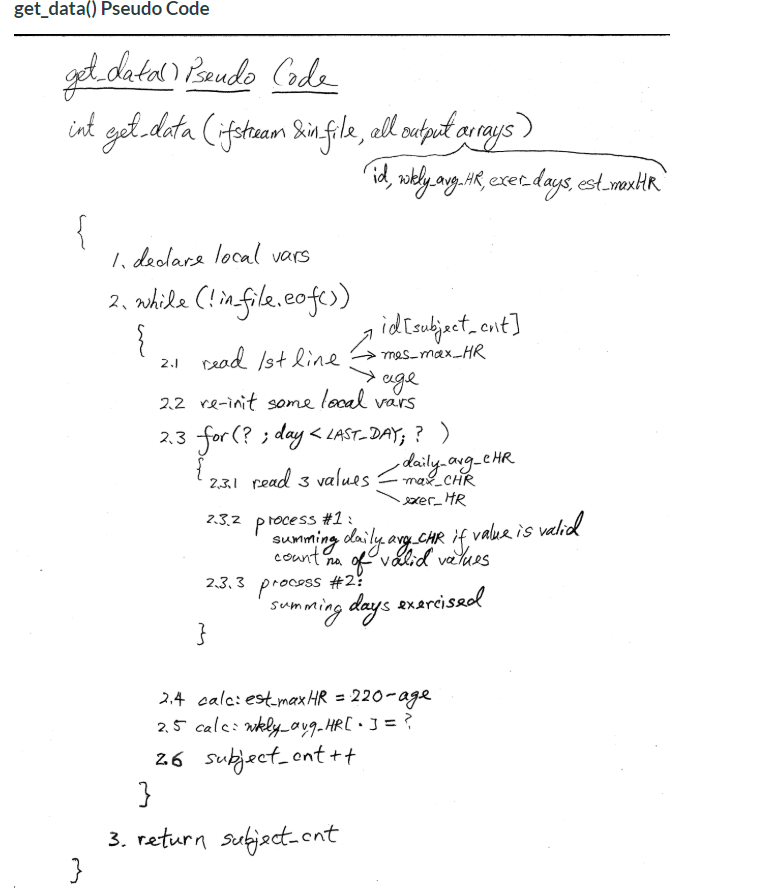 get_data() Pseudo Code
get_data() Pseudo Code
int get_data (ifstream &in_file, all output arrays)
id, wkly_avg_HR, exer_days, est_maxHR
{
1. declare local vars
2. while (!in_file.eof())
{
id[subject_cnt]
2.1 read 1st line → mes_max_HR
age
2.2 re-init some local vars
2.3 for(? ; day < LAST_DAY; ? )
{
daily_avg_CHR
2.3.1 read 3 values max_CHR
exer_HR
2.3.2 process #1:
summing daily_avg_CHR if value is valid
count no. of valid values
2.3.3 process #2:
summing days exercised
}
2.4 calc: est_maxHR = 220-age
2.5 calc: wkly_avg_HR[ · ] = ?
2.6 subject_cnt++
}
3. return subject_cnt
}